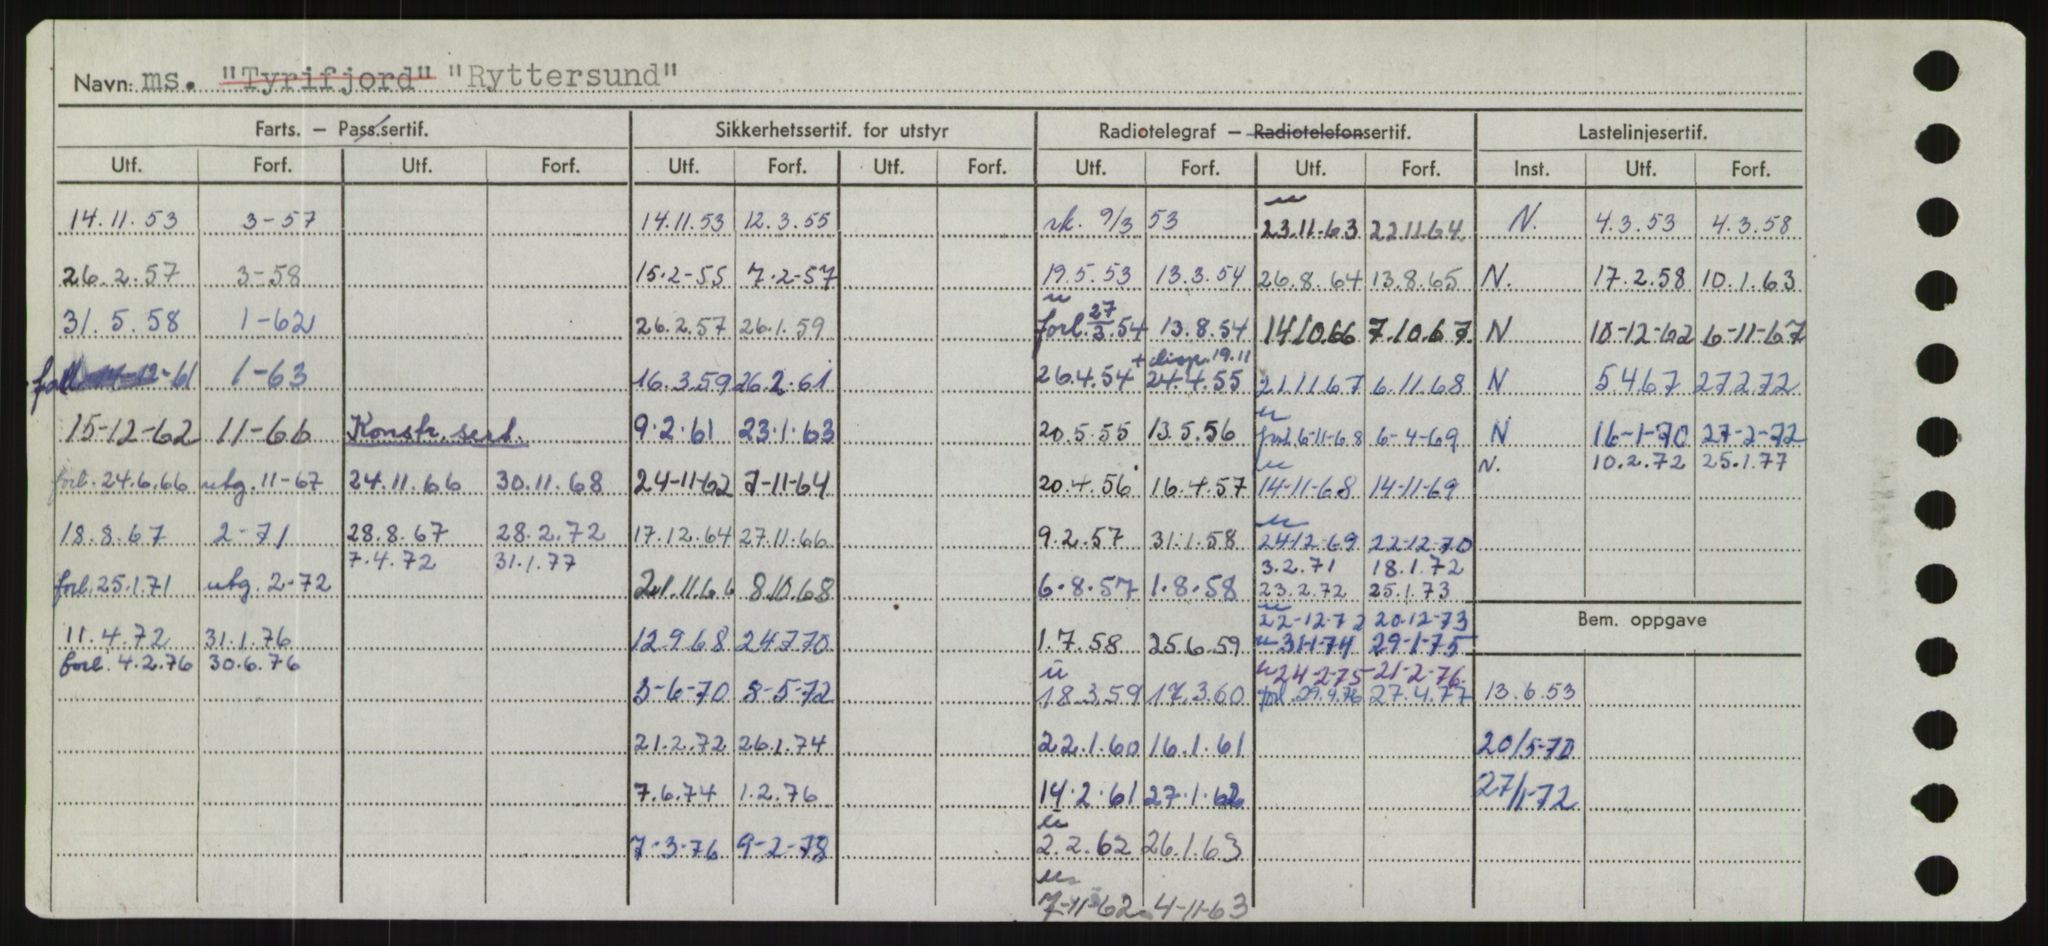 Navn: ms. "Tyrifjord" "Ryttersund"
Farts. – Pass.sertif. Sikkerhetssertif. for utstyr Radiotelegraf – Radiotelefonsertif. Lastelinjesertif.
Utf. Forf. Utf. Forf. Utf. Forf. Utf. Forf. Utf. Forf. Utf. Forf. Inst. Utf. Forf.
14.11.53 3-57 14.11.53 12.3.55 rk. 9/3 53 23.11.63 22.11.64 N. 4.3.53 4.3.58
26.2.57 3-58 15.2-55 7.2-57 19.5.53 13.3.54 26.8.64 13.8.65 N. 17.2.58 10.1.63
31.5.58 1-62 26.2.57 26.1.59 forl. 27/3.54 13.8.54 14.10.66 7.10.67 N 10-12-62 6-11-67
-12-61 1-63 16.3.59 26.2.61 26.4.54 + disp. 19.11 24.4.55 21.11.67 6.11.68 N 5.4.67 27.2.72
15-12-62 11-66 Konstr. sert. 9.2.61 23.1.63 20.5.55 13.5.56 forl. 6-11-68 6-4-69 N 16-1-70 27-2-72
N. 10.2.72 25.1.77
forl. 24.6.66 utg. 11-67 24.11.66 30.11.68 24-11-62 7-11-64 20.4.56 16.4.57 14-11-68 14-11-69
18.8.67 2-71 28.8.67 28.2.72 17.12.64 27.11.66 9.2.57 31.1.58 24-12-69 22-12-70
7.4.72 31.1.77 3.2.71 18.1.72
forl. 25.1.71 utg. 2-72 21.11.66 8.10.68 6.8.57 1.8.58 23.2.72 25.1.73
22-12-72 20-12-73
11.4.72 31.1.76 12.9.68 24.7.70 1.7.58 25.6.59 31-1-74 29-1-75 Bem. oppgave
forl. 4.2.76 30.6.76 24-2-75 21-2-76
3-6-70 8-5-72 18.3.59 17.3.60 forl. 29.4.76 27.4.77 13.6.53
21.2.72 26.1.74 22.1.60 16.1.61 20/5-70
7.6.74 1.2.76 14.2.61 27.1.62 27/1-72
7-3-76 9-2-78 2.2.62 26.1.63
7-11-62 4-11-63